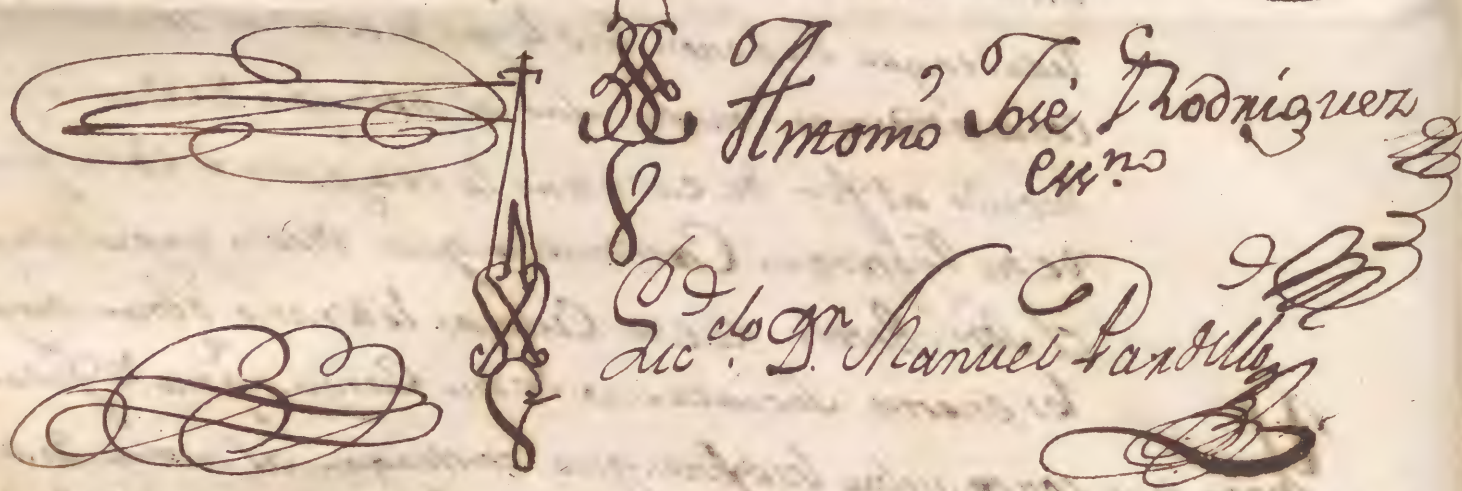 Antonio José Rodriguez
ess.no
Lic.do Dn Manuel Pardilla